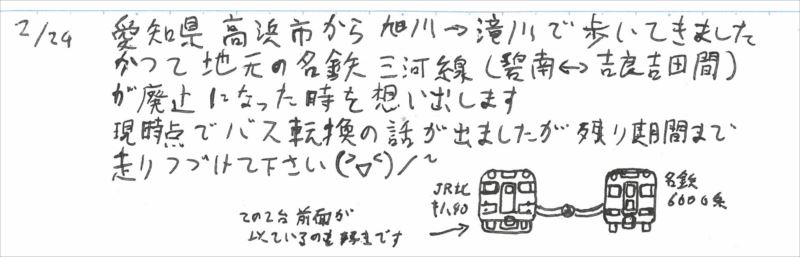 2/24 愛知県 高浜市から 旭川→滝川で歩いてきました
かつて地元の名鉄 三河線(碧南↔吉良吉田間)
が廃止になった時を想い出します
現時点でバス転換の話が出ましたが残り期間まで
走りつづけて下さい(>▽<)/~
JR北
キハ40
名鉄
6000系
この2台前面が
似ているのも好きです